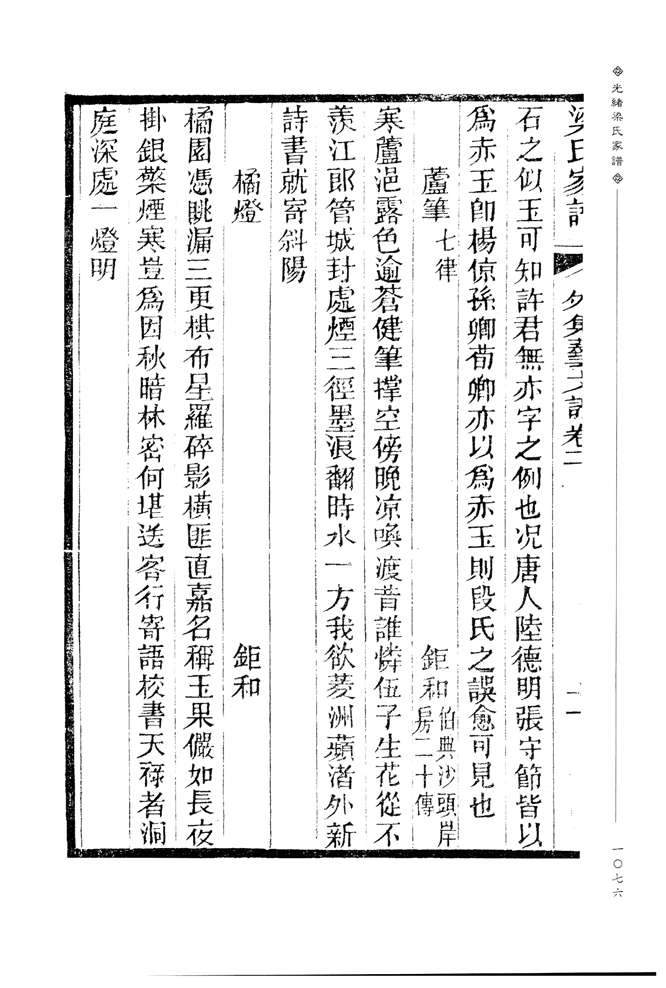 光緒梁氏家譜
一〇七六
梁氏家譜 外集藝文譜卷二 二
石之似玉可知許君無亦字之例也况唐人陸德明張守節皆以
為赤玉卽楊倞孫卿荀卿亦以為赤玉則段氏之誤愈可見也
蘆筆 七律 鉅和 伯典沙頭岸房二十傳
寒蘆浥露色逾蒼健筆撑空傍晚凉喚渡昔誰憐伍子生花從不
羡江郎管城封處煙三徑墨浪翻時水一方我欲菱洲蘋渚外新
詩書就寄斜陽
橘燈 鉅和
橘園憑眺漏三更棋布星羅碎影橫匪直嘉名稱玉果儼如長夜
掛銀檠煙寒豈為因秋暗林密何堪送客行寄語校書天祿者洞
庭深處一燈明